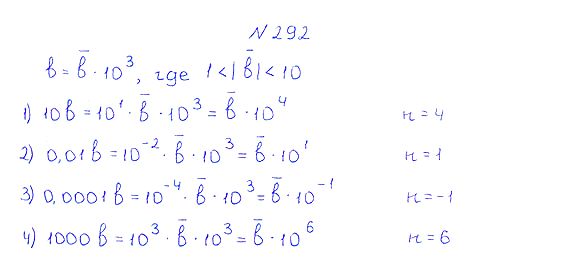 N 292
b = b̄ · 10³, где 1 < | b̄ | < 10
1) 10b = 10¹ · b̄ · 10³ = b̄ · 10⁴ n = 4
2) 0,01b = 10⁻² · b̄ · 10³ = b̄ · 10¹ n = 1
3) 0,0001b = 10⁻⁴ · b̄ · 10³ = b̄ · 10⁻¹ n = -1
4) 1000b = 10³ · b̄ · 10³ = b̄ · 10⁶ n = 6